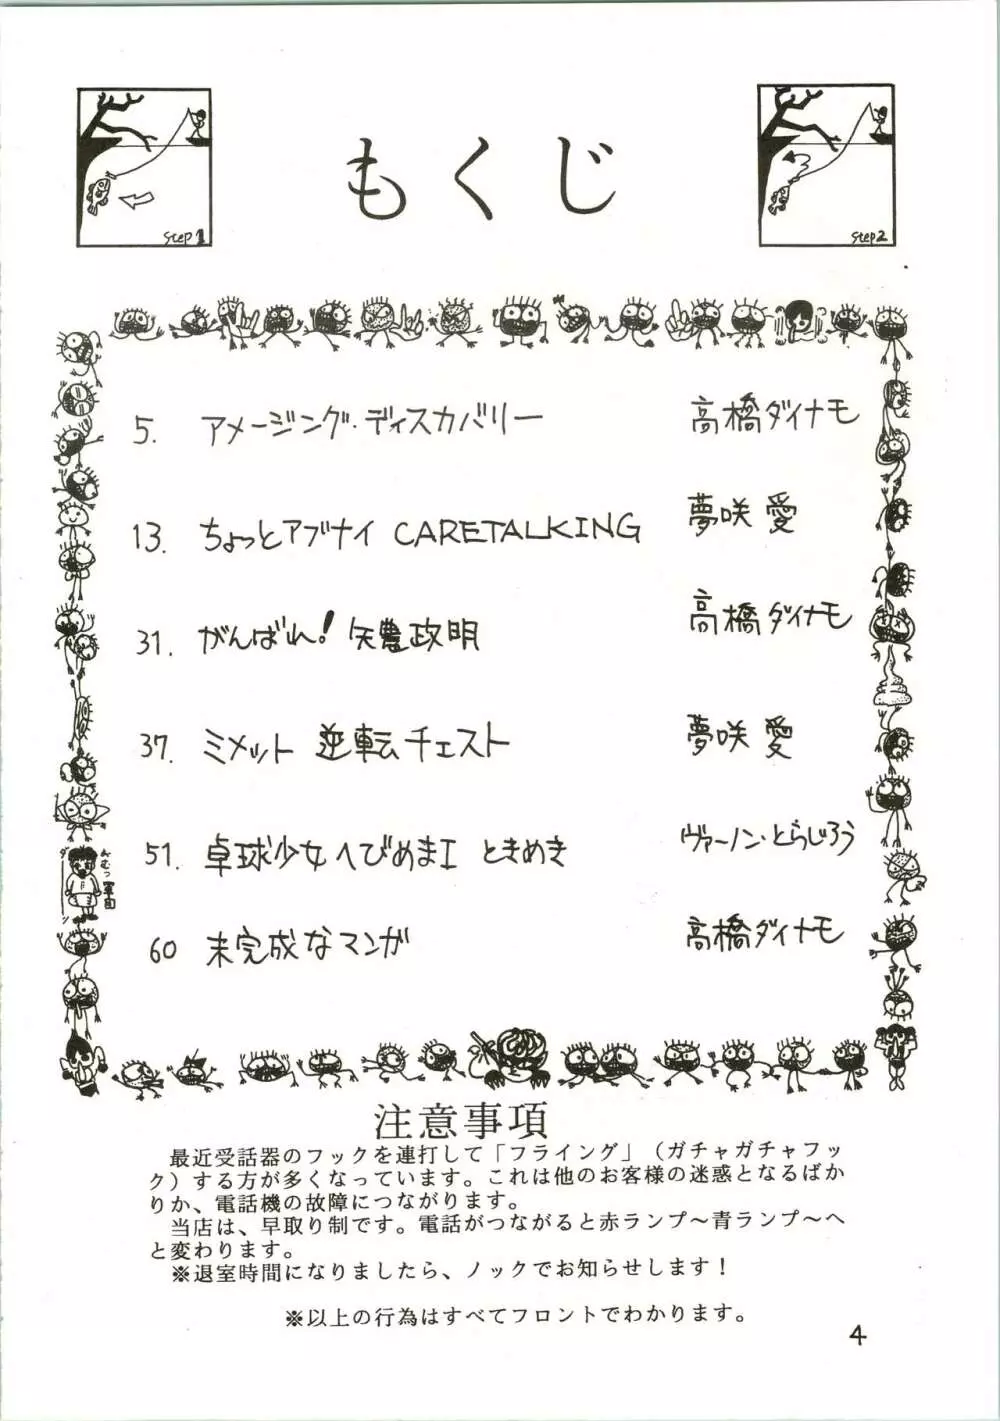 もくじ
Step 1
Step 2
5. アメージング・ディスカバリー 高橋ダイナモ
13. ちょっとアブナイ CARETALKING 夢咲 愛
31. がんばれ! 矢豊政明 高橋ダイナモ
37. ミメット 逆転チェスト 夢咲 愛
51. 卓球少女へびめまI ときめき ヴァーノン・とらじろう
60 未完成なマンガ 高橋ダイナモ
注意事項
最近受話器のフックを連打して「フライング」(ガチャガチャフッ
ク)する方が多くなっています。これは他のお客様の迷惑となるばか
りか、電話機の故障につながります。
当店は、早取り制です。電話がつながると赤ランプ～青ランプ～へ
と変わります。
※退室時間になりましたら、ノックでお知らせします!
※以上の行為はすべてフロントでわかります。
4